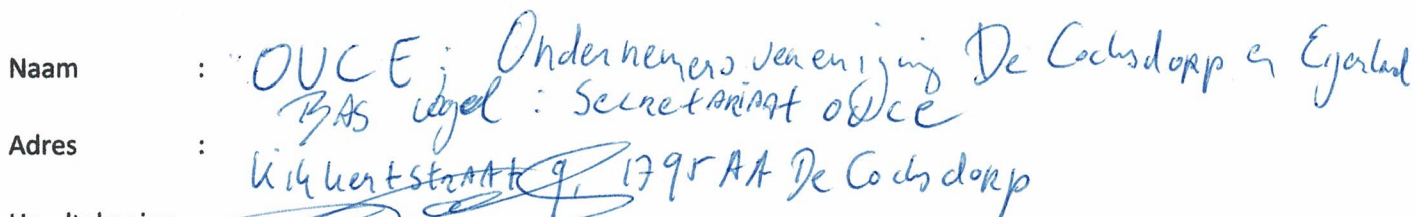 Naam : OVCE; Ondernemersvereniging De Cocksdorp en Eijerland
BAS Vogel : Secretariaat OVCE
Adres :
Kikkertstraat 9, 1795 AA De Cocksdorp